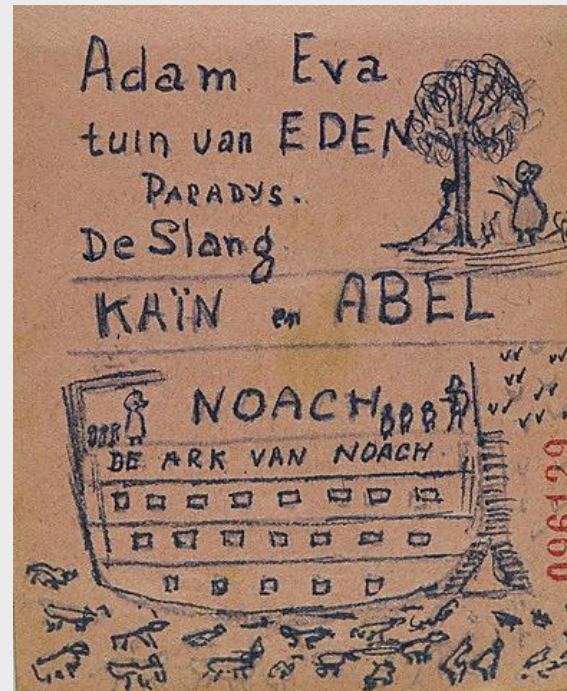 Adam Eva
tuin van EDEN
PARADYS.
De Slang
KAÏN en ABEL
NOACH
DE ARK VAN NOACH
096129